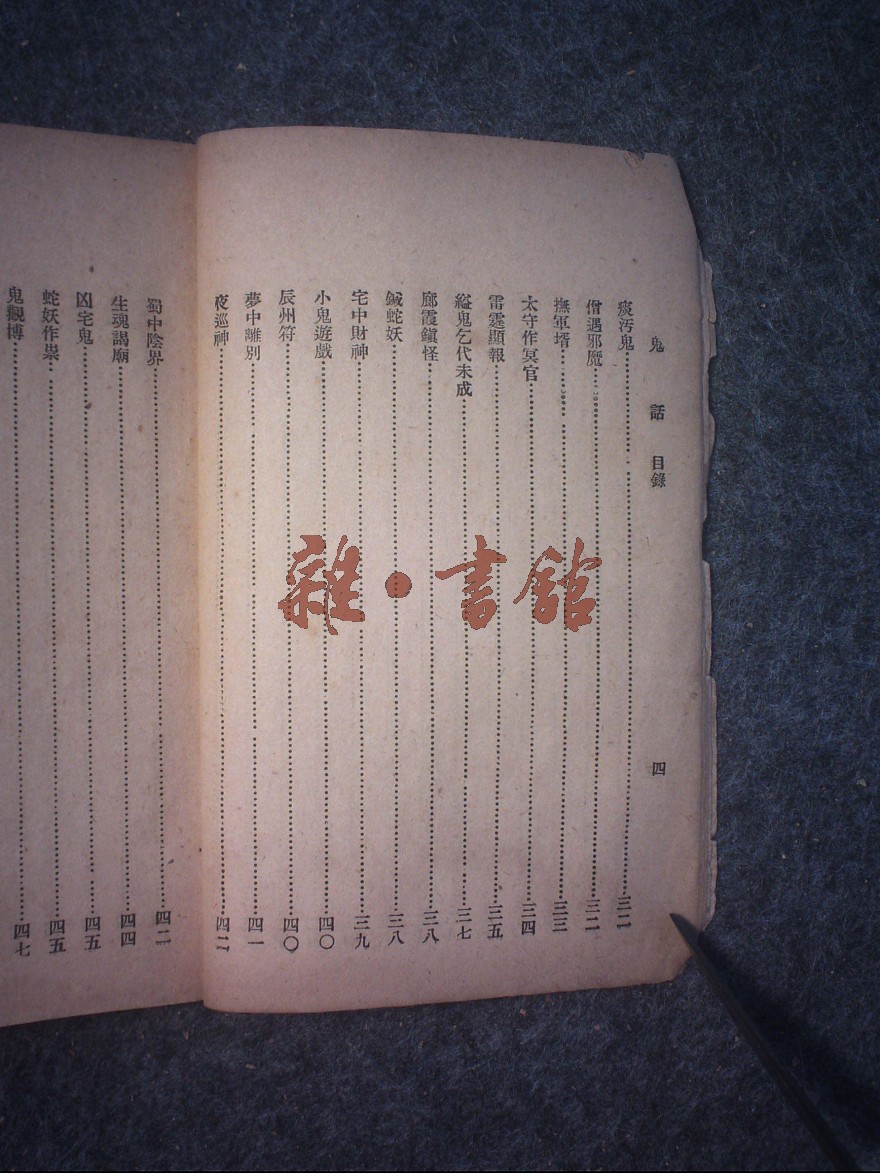 鬼話 目錄 四
痰汚鬼 三二
僧遇邪魔 三二
撫軍壻 三三
太守作冥官 三四
雷霆顯報 三五
縊鬼乞代未成 三七
廊霞鎭怪 三八
鍼蛇妖 三八
宅中財神 三九
小鬼遊戲 四〇
辰州符 四〇
夢中離別 四一
夜巡神 四二
蜀中陰界 四二
生魂謁廟 四四
凶宅鬼 四五
蛇妖作祟 四五
鬼觀博 四七
雜·書館